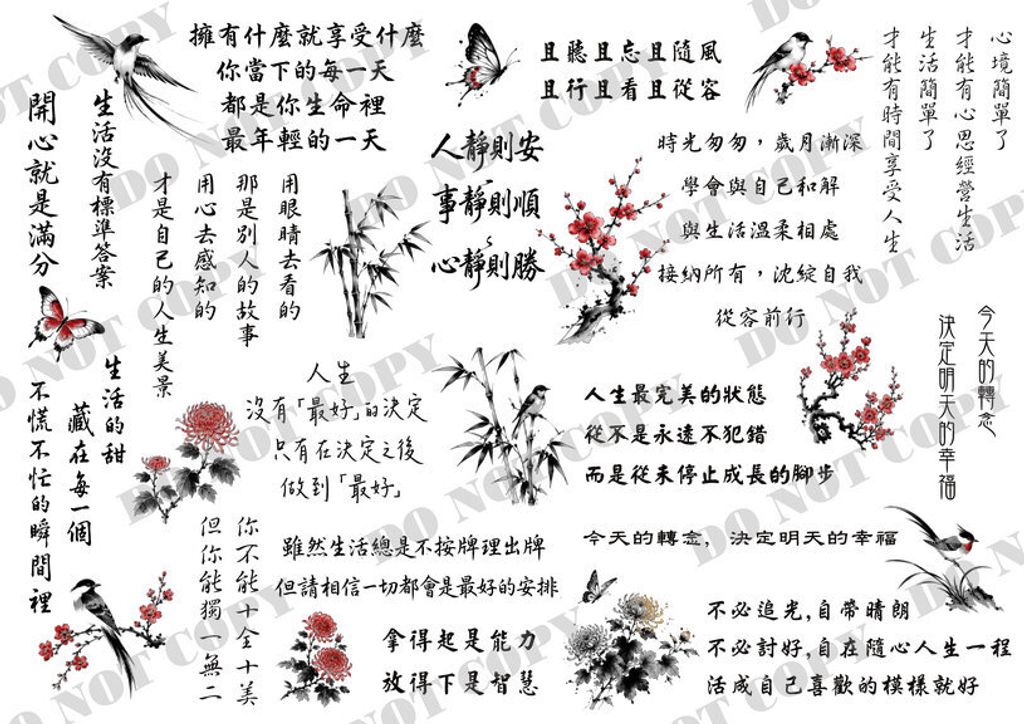 擁有什麼就享受什麼
你當下的每一天
都是你生命裡
最年輕的一天
且聽且忘且隨風
且行且看且從容
心境簡單了
才能有心思經營生活
生活簡單了
才能有時間享受人生
生活沒有標準答案
開心就是滿分
人靜則安
事靜則順
心靜則勝
時光匆匆，歲月漸深
學會與自己和解
與生活溫柔相處
接納所有，沈綻自我
從容前行
用眼睛去看的
那是別人的故事
用心去感知的
才是自己的人生美景
今天的轉念
決定明天的幸福
生活的甜
藏在每一個
不慌不忙的瞬間裡
人生
沒有「最好」的決定
只有在決定之後
做到「最好」
人生最完美的狀態
從不是永遠不犯錯
而是從未停止成長的腳步
你不能十全十美
但你能獨一無二
雖然生活總是不按牌理出牌
但請相信一切都會是最好的安排
今天的轉念，決定明天的幸福
拿得起是能力
放得下是智慧
不必追光,自帶晴朗
不必討好,自在隨心人生一程
活成自己喜歡的模樣就好
DO NOT COPY
DO NOT COPY
DO NOT COPY
DO NOT COPY
DO NOT COPY
DO NOT COPY
DO NOT COPY
DO NOT COPY
DO NOT COPY